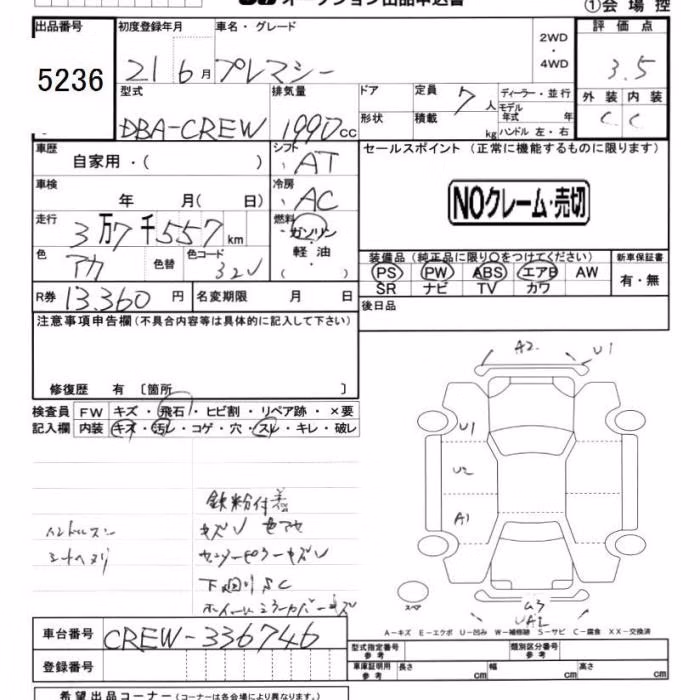 オークション出品申込書
①会場控
出品番号 初度登録年月 車名・グレード 2WD・4WD 評価点
5236 21 6月 プレマシー 3.5
型式 排気量 ドア 定員 7人 ディーラー・並行 外装 内装
DBA-CREW 1990cc 形状 積載 kg モデル年式 年 ハンドル 左・右 C C
車歴 自家用・( ) シフト AT セールスポイント (正常に機能するものに限ります)
車検 年 月( 日) 冷房 AC
NOクレーム・売切
走行 3万7千557km 燃料 ガソリン・軽油・( )
色 アカ 色替 色コード 32V
装備品 (純正品に限り○をつけてください) 新車保証書
PS PW ABS エアB AW 有・無
SR ナビ TV カワ
R券 13.360円 名変期限 月 日 後日品
注意事項申告欄(不具合内容等は具体的に記入して下さい)
修復歴 有 〔箇所 〕
検査員 FW キズ・飛石・ヒビ割・リペア跡・×要
記入欄 内装 キズ・汚レ・コゲ・穴・スレ・キレ・破レ
A2 U1
U1
U2
A1
鉄粉付着
ハンドルスレ キズU 色アセ
シートヘタリ センターピラーキズU
下廻りSC
ホイールミラーカバーキズ
スペア
A-キズ E-エクボ U-凹み W-補修跡 S-サビ C-腐食 XX-交換済
車台番号 CREW-336746
登録番号
型式指定番号 参考 類別区分番号 参考
車庫証明用 参考 長さ cm 幅 cm 高さ cm
希望出品コーナー (コーナーは各会場により異なります。)